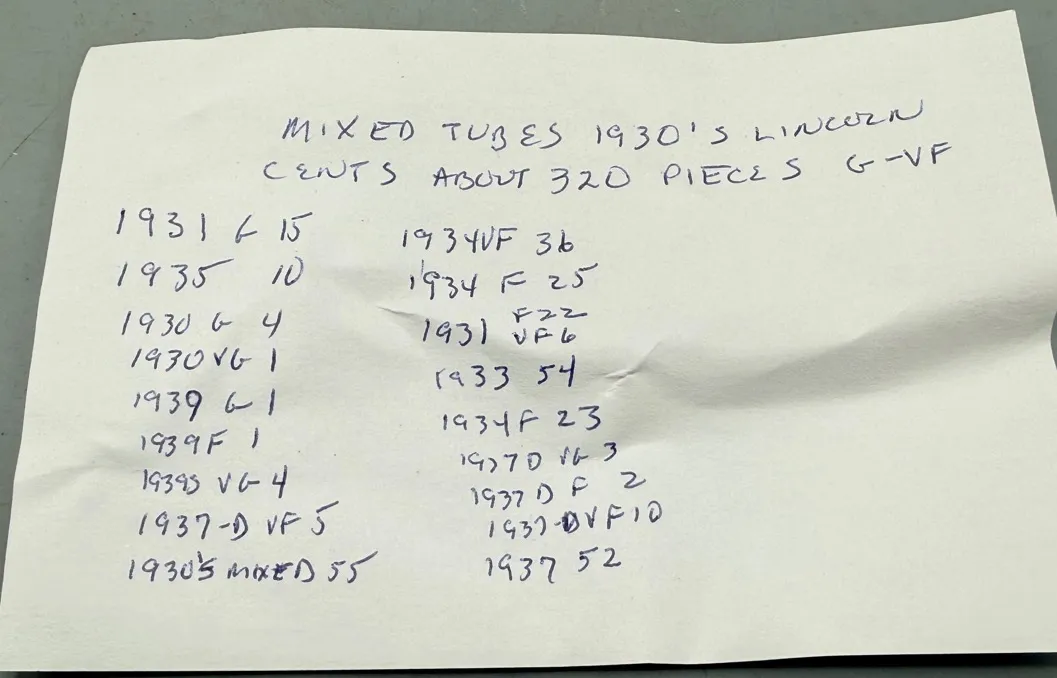 MIXED TUBES 1930'S LINCOLN
CENTS ABOUT 320 PIECES G-VF
1931 G 15
1935 10
1930 G 4
1930 VG 1
1939 G 1
1939 F 1
1939S VG 4
1937-D VF 5
1930'S MIXED 55
1934 VF 36
1934 F 25
1931 F 22
VF 6
1933 54
1934 F 23
1937 D VG 3
1937 D F 2
1937-D VF 10
1937 52